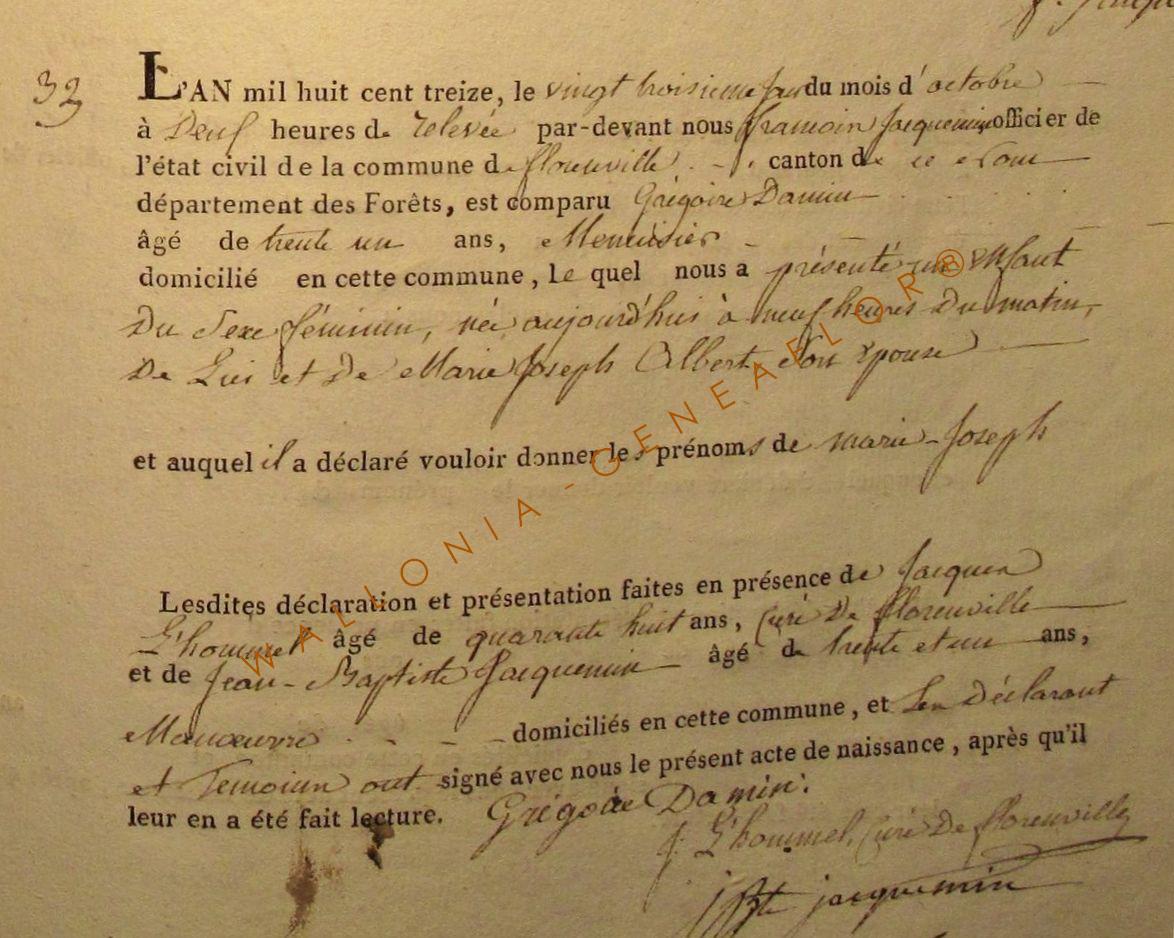 33
L'AN mil huit cent treize, le vingt troisieme jour du mois d'octobre
à Deux heures de relevée par-devant nous françois Jacquemin officier de
l'état civil de la commune de florenville canton de ce nom
département des Forêts, est comparu Grégoire Damin
âgé de trente un ans, Menuisier
domicilié en cette commune, lequel nous a présenté un enfant
Du Sexe féminin, née aujourd'hui à neuf heures Du matin,
De Lui et De Marie Joseph Albert son épouse
et auquel il a déclaré vouloir donner les prénoms de marie-Joseph
Lesdites déclaration et présentation faites en présence de Jacques
L'hommel âgé de quarante huit ans, Curé De florenville
et de Jean-Baptiste Jacquemin âgé de trente et un ans,
Manœuvre domiciliés en cette commune, et Les Déclarant
et Temoins ont signé avec nous le présent acte de naissance, après qu'il
leur en a été fait lecture. Grégoire Damin.
J. L'hommel, Curé De florenville
jBte jacquemin
WALLONIA-GENEAFLOR®